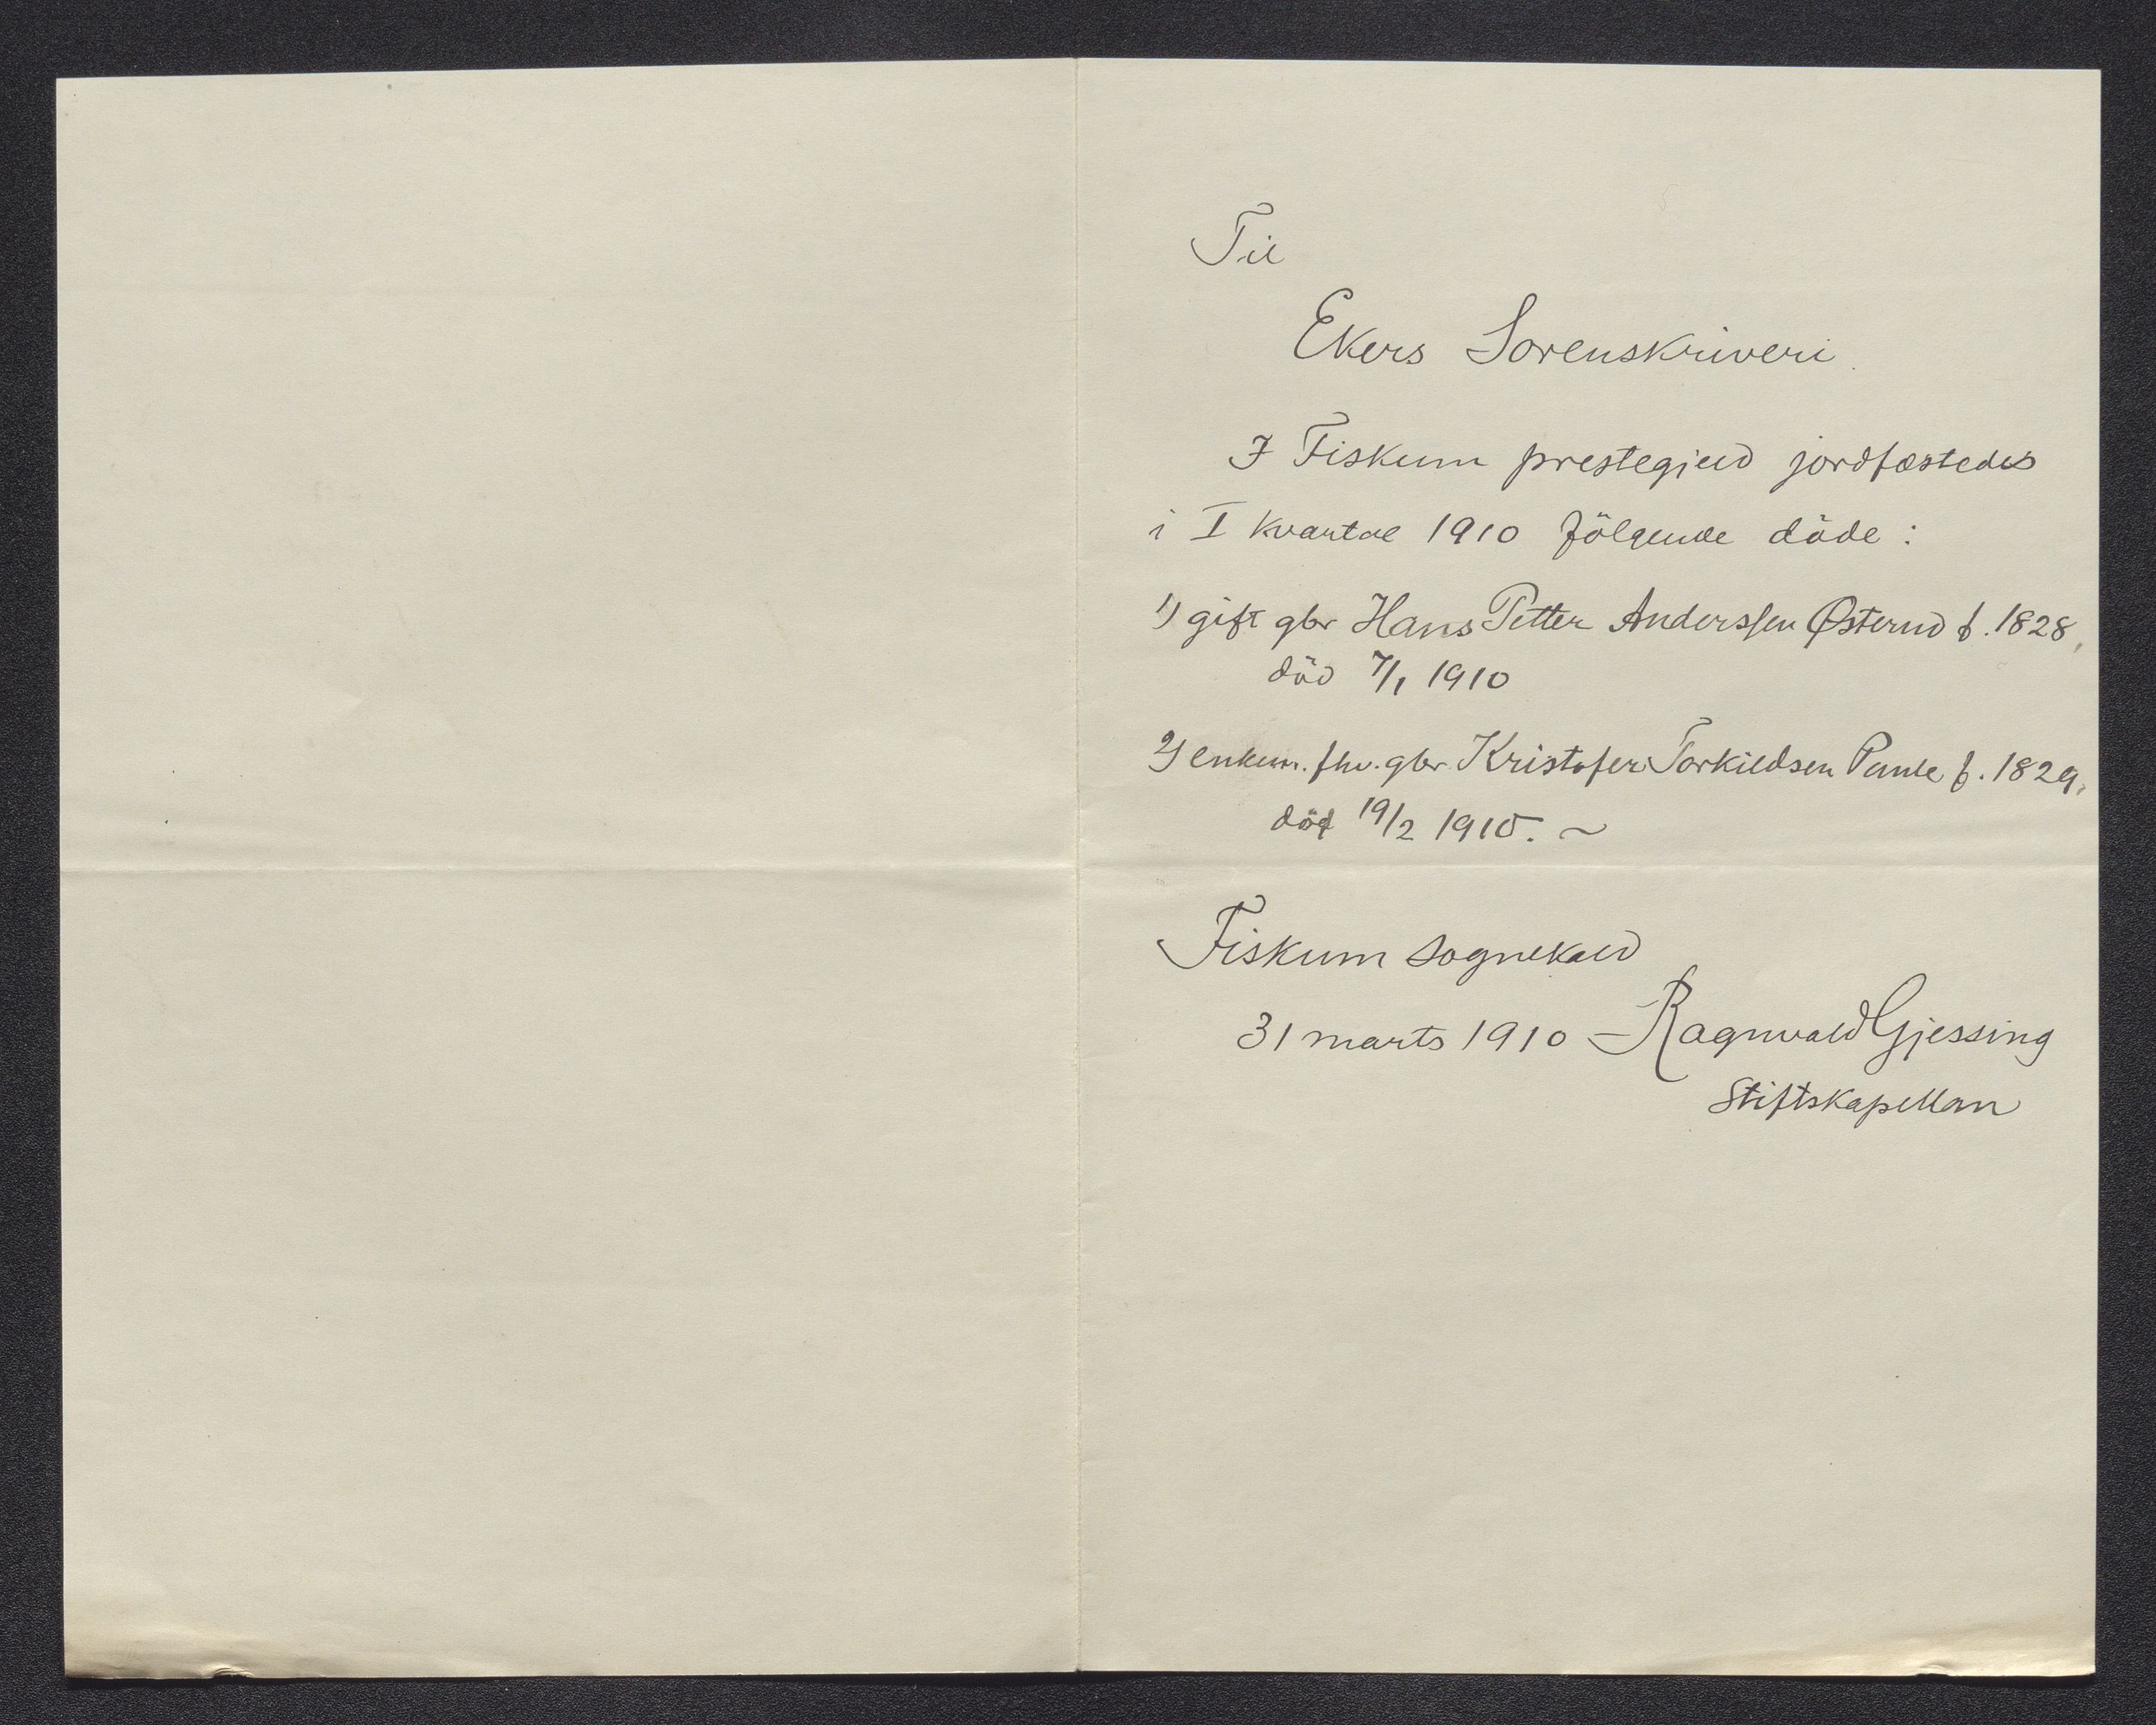 Til
Ekers Sorenskriveri
I Fiskum prestegjeld jordfæstedes
i I kvartal 1910 fölgende döde:
1) gift gbr Hans Petter Anderssen Østerud f. 1828,
död 7/1 1910
2) enkem. fhv. gbr Kristofer Torkildsen f. 1829,
död 19/2 1910. ~
Fiskum sognekald
31 marts 1910 Ragnvald Gjessing
Stiftskapellan